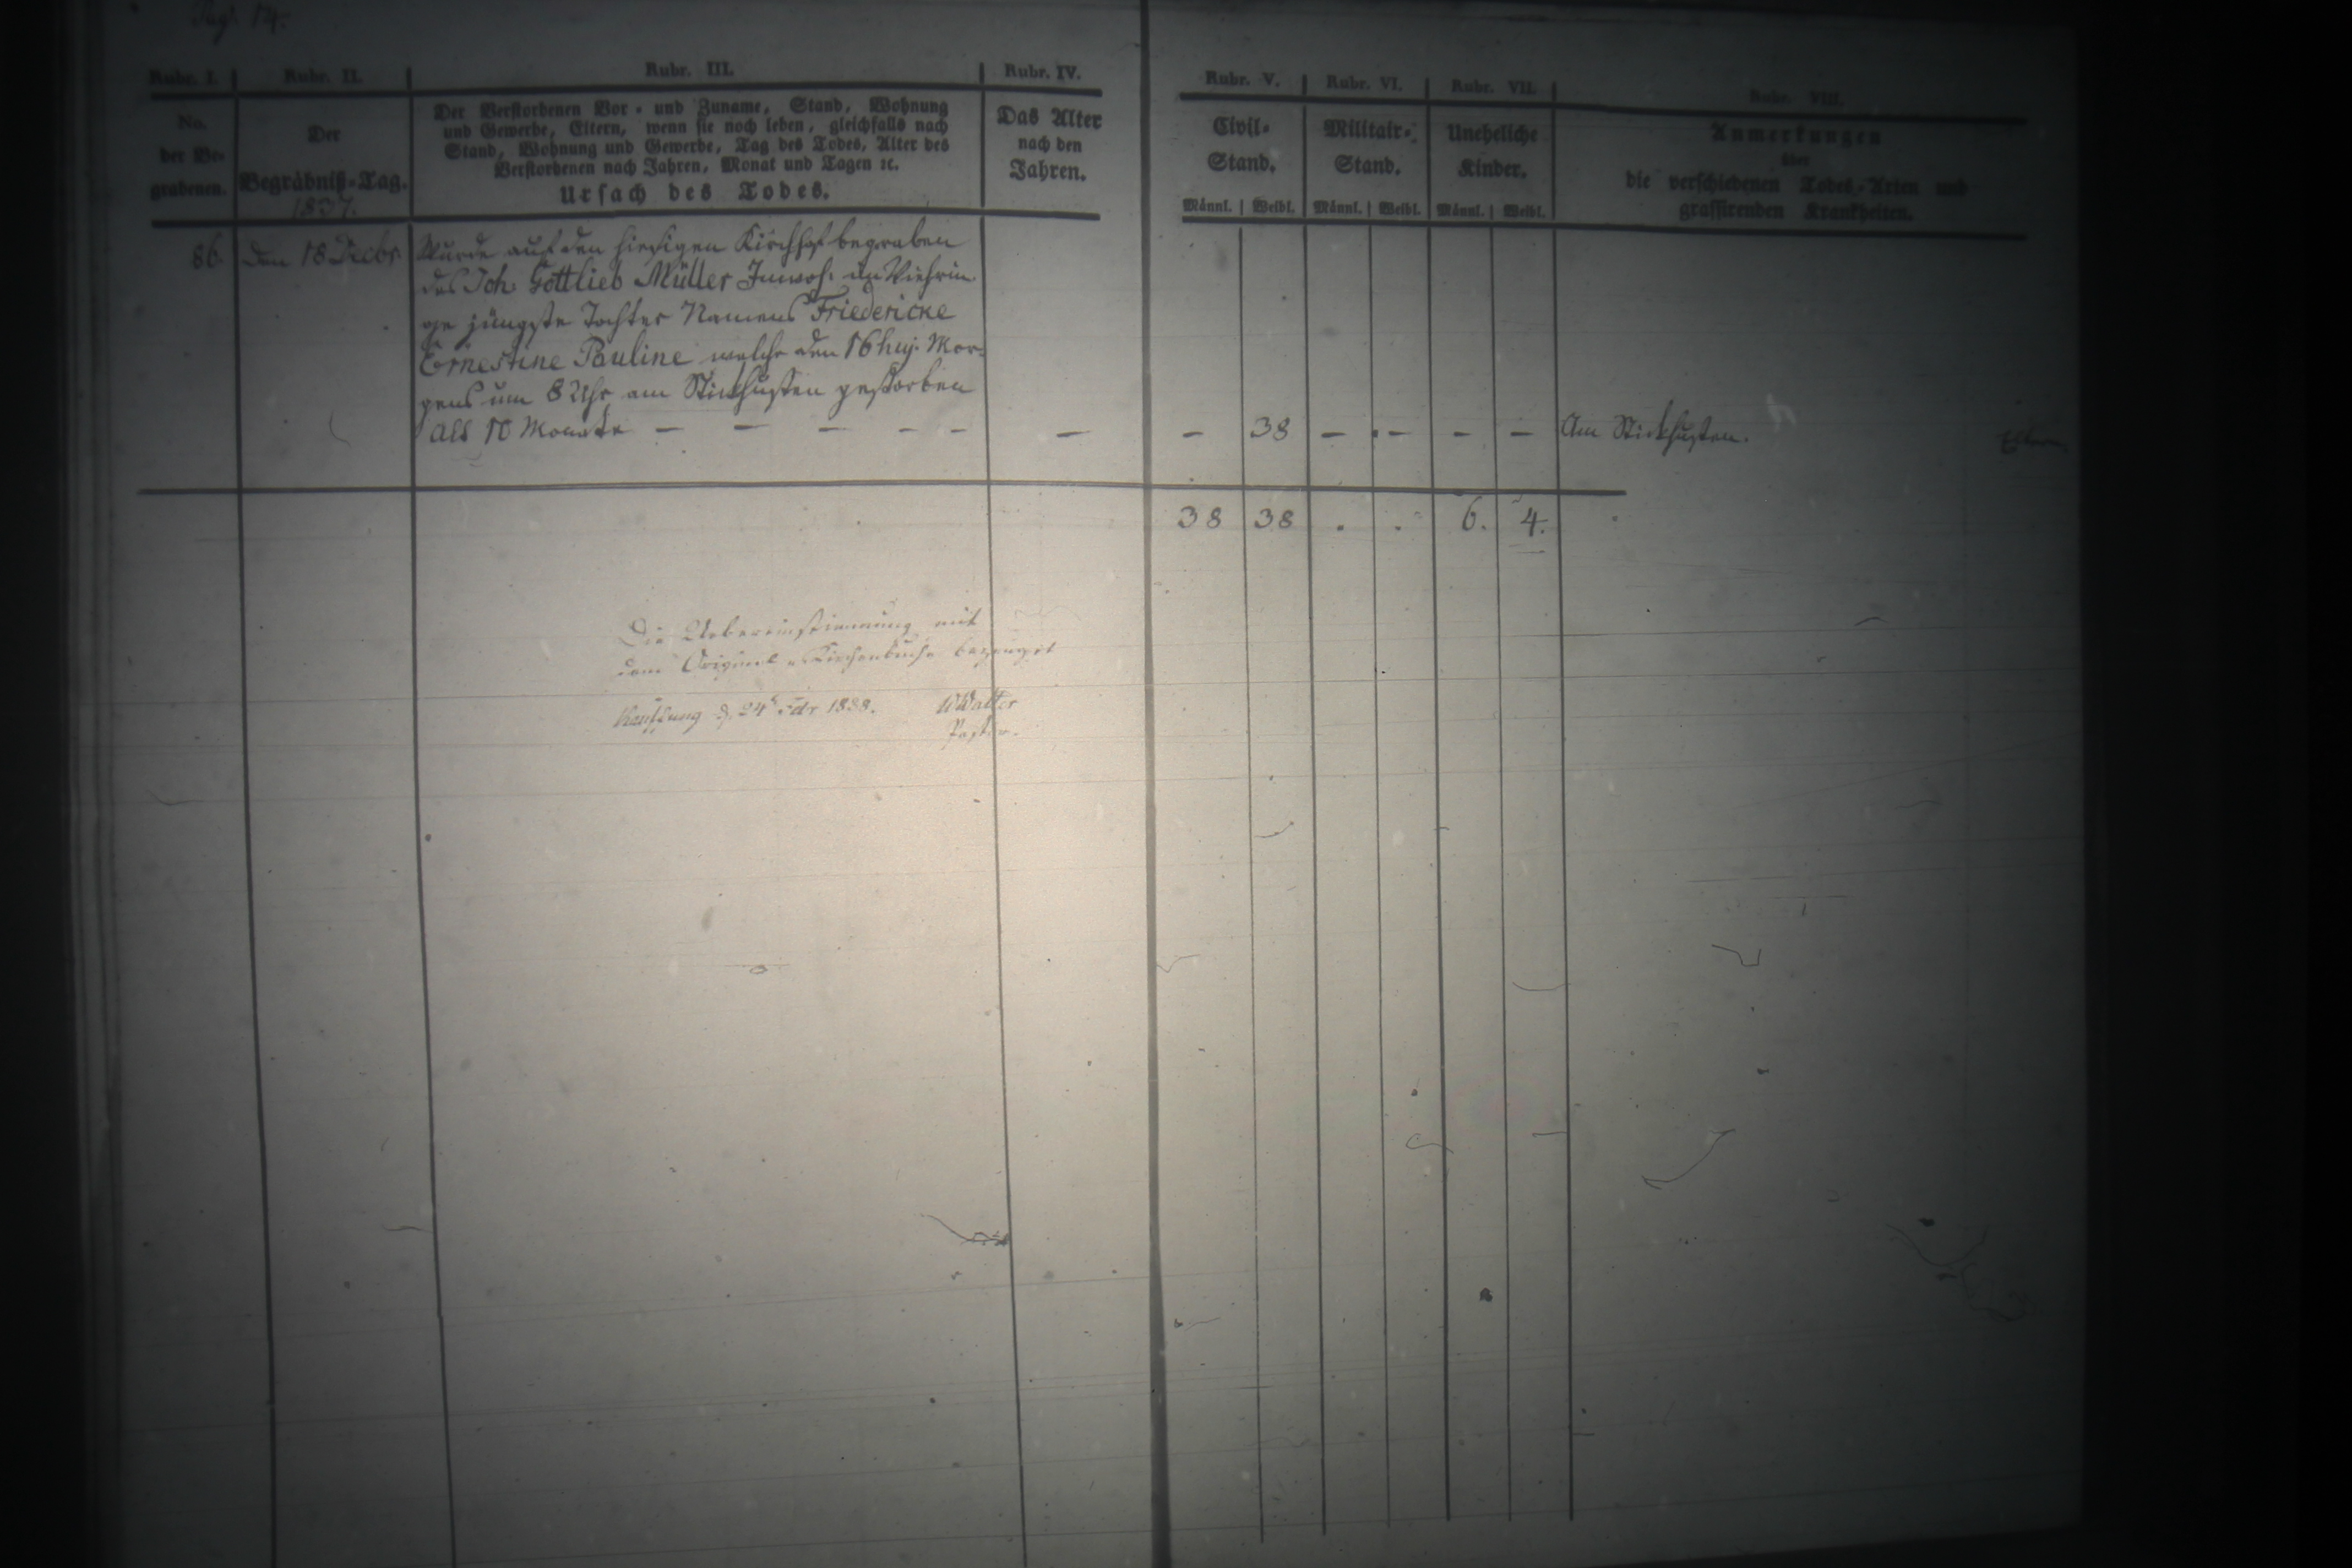 Pag. 14.
Rubr. I. Rubr. II. Rubr. III. Rubr. IV. Rubr. V. Rubr. VI. Rubr. VII. Rubr. VIII.
No. der Be- grabenen.
Der Begräbniß-Tag.
1837.
Der Verstorbenen Vor- und Zuname, Stand, Wohnung
und Gewerbe, Eltern, wenn sie noch leben, gleichfalls nach
Stand, Wohnung und Gewerbe, Tag des Todes, Alter des
Verstorbenen nach Jahren, Monat und Tagen ꝛc.
Ursach des Todes.
Das Alter
nach den
Jahren.
Civil-
Stand.
Männl. Weibl.
Militair-
Stand.
Männl. Weibl.
Uneheliche
Kinder.
Männl. Weibl.
Anmerkungen
über
die verschiedenen Todes-Arten und
grassirenden Krankheiten.
86. den 18 Decbr. Wurde auf den hiesigen Kirchhof begraben
des Joh. Gottlieb Müller Inwoh. in
ge jüngste Tochter Namens Friedericke
Ernestine Pauline welche den 16 huj. Mor-
gens um 8 Uhr am Stickhusten gestorben
alt 10 Monate — — — — — — — 38 — — — — Am Stickhusten.
38 38 . . 6. 4.
Die Uebereinstimmung mit
dem Original-Kirchenbuche bezeuget
Kauffung d. 24 1838. Walter
Pastor.